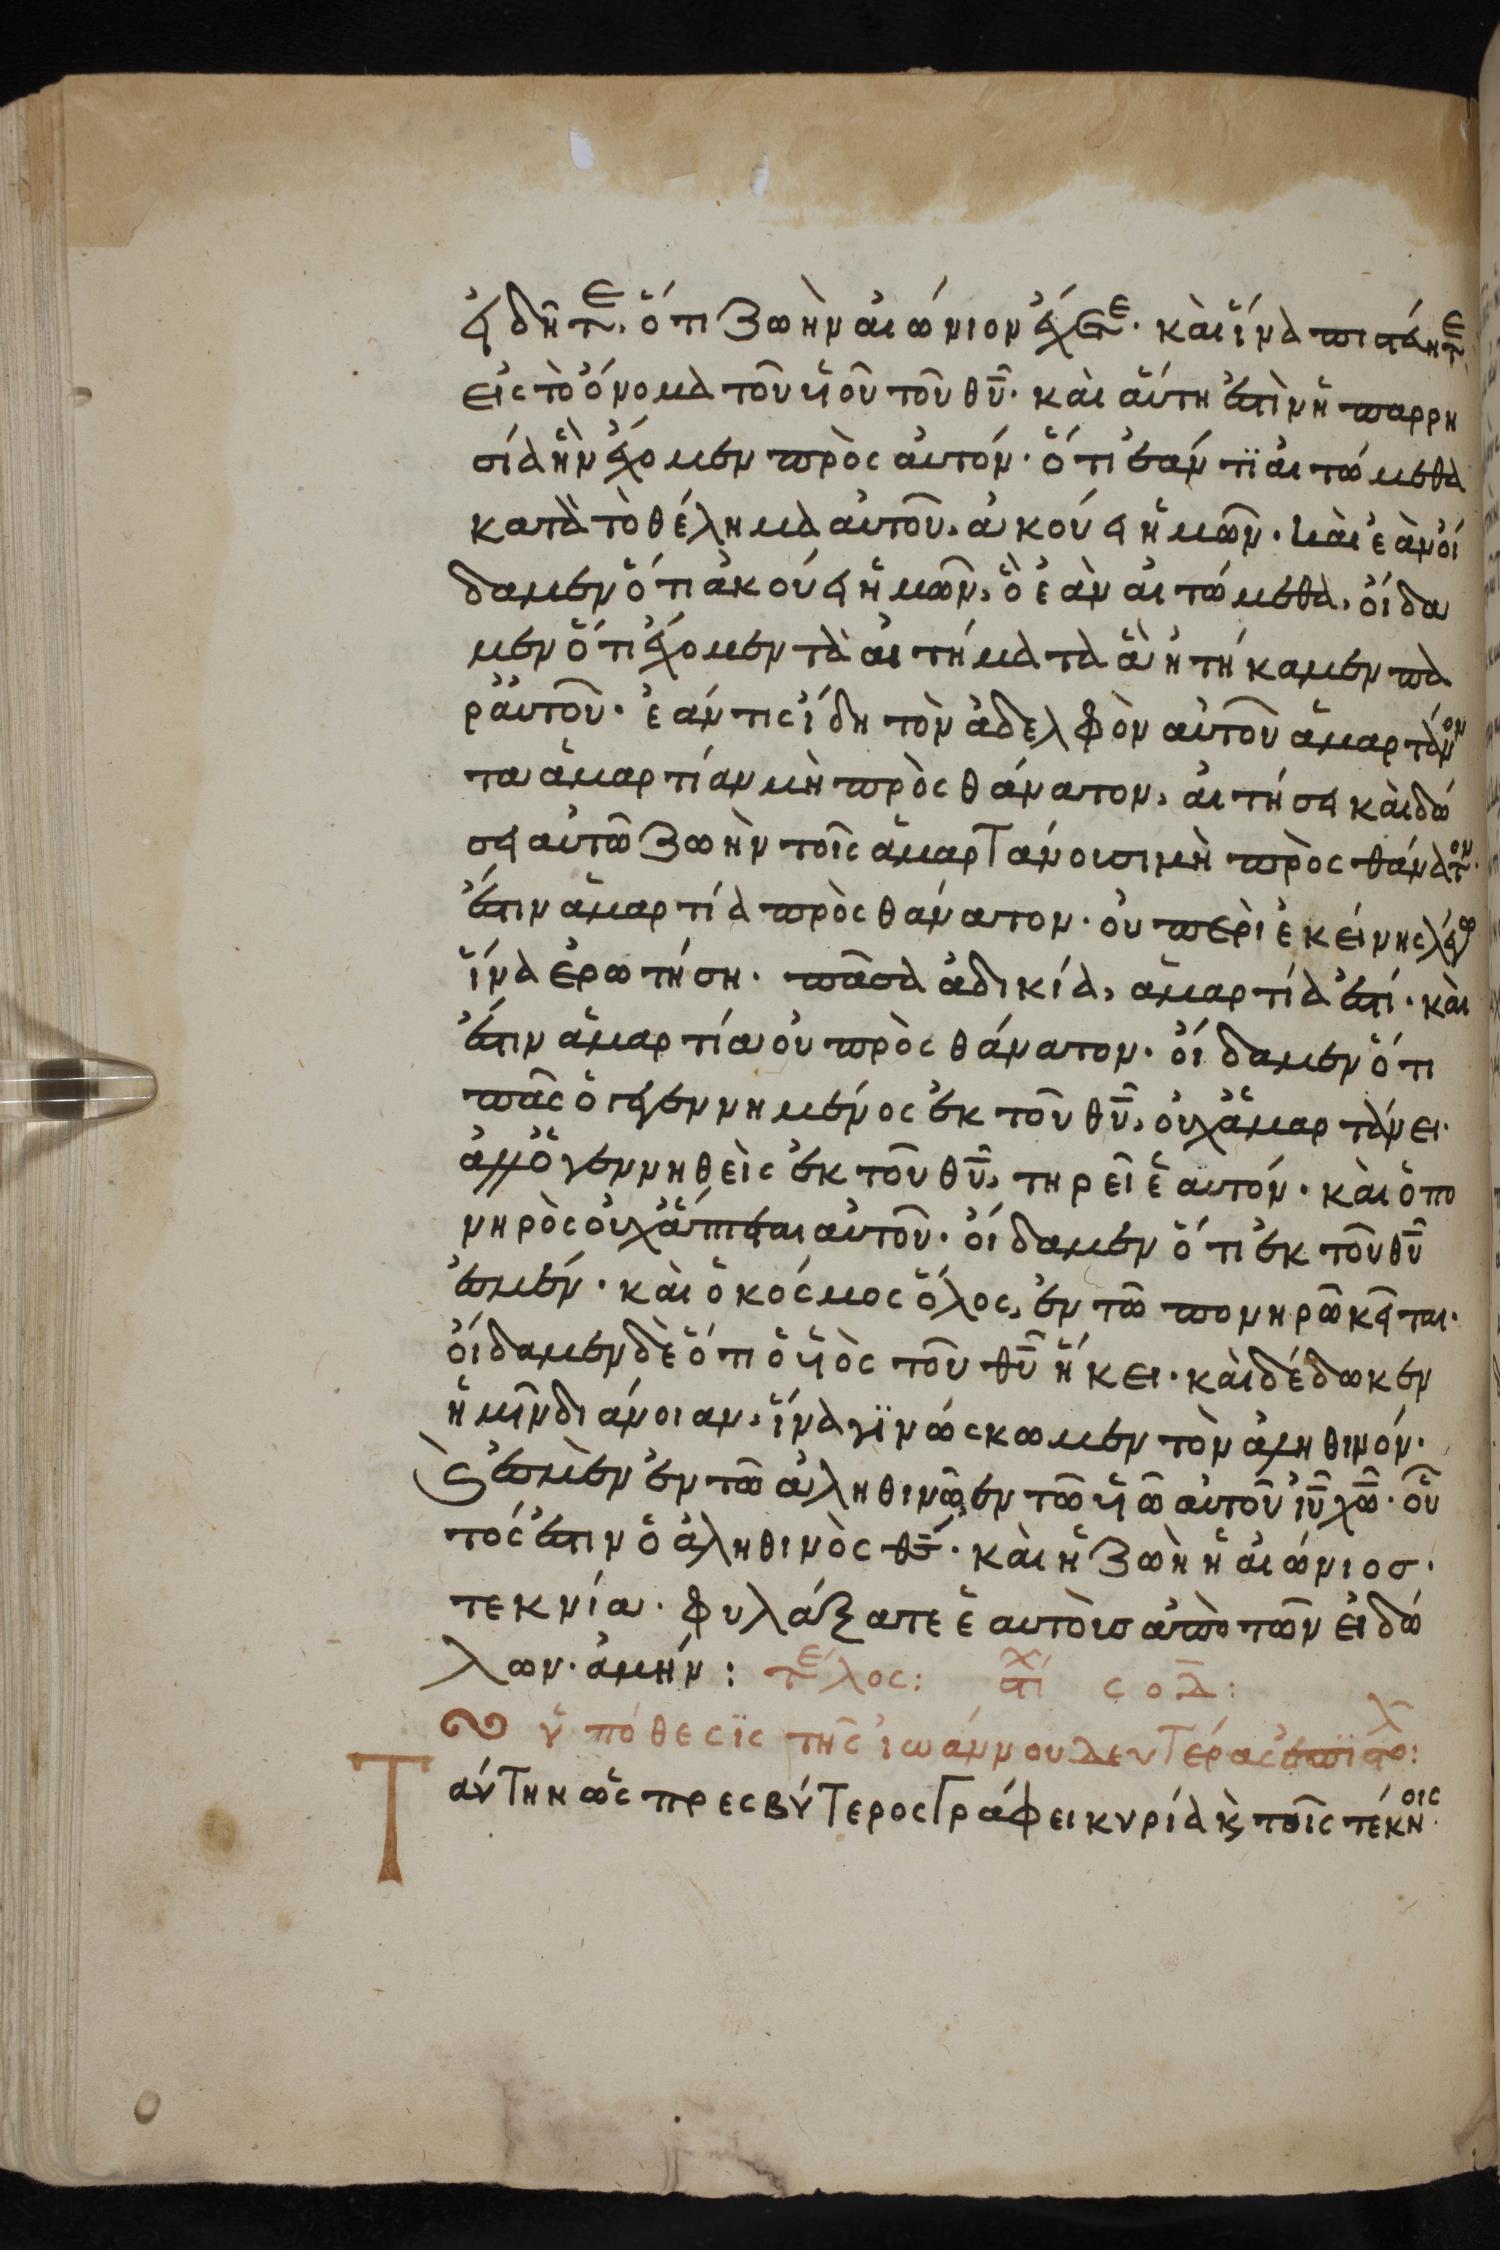 εἰδῆτε, ὅτι ζωὴν αἰώνιον ἔχετε· καὶ ἵνα πιστεύητε
εἰς τὸ ὄνομα τοῦ υἱοῦ τοῦ θῡ· καὶ αὕτη ἐστὶν ἡ παρρη
σία ἣν ἔχομεν πρὸς αὐτόν· ὅτι ἐάν τϊ αἰτώμεθα
κατὰ τὸ θέλημα αὐτοῦ, ἀκούει ἡμῶν· καὶ ἐὰν οἴ
δαμεν ὅτι ἀκούει ἡμῶν, ὃ ἐὰν αἰτώμεθα, οἴδα
μεν ὅτι ἔχομεν τὰ αἰτήματα ἃ ἠτήκαμεν πα
ρ' αὐτοῦ· ἐάν τις ἴδη τὸν ἀδελφὸν αὐτοῦ ἁμαρτάνον
τα ἁμαρτίαν μὴ πρὸς θάνατον, αἰτήσει καὶ δώ
σει αὐτῶ ζωὴν τοῖς ἁμαρτάνουσι μὴ πρὸς θάνατον·
ἔστιν ἁμαρτία πρὸς θάνατον· οὐ περὶ ἐκείνης λέγω
ἵνα ἐρωτήση· πᾶσα ἀδικία, ἁμαρτία ἐστί· καὶ
ἔστιν ἁμαρτία οὐ πρὸς θάνατον· οἴδαμεν ὅτι
πᾶς ὁ γεγεννημένος ἐκ τοῦ θῡ, οὐχ ἁμαρτάνει·
ἀλλ' ὁ γεννηθεὶς ἐκ τοῦ θῡ, τηρεῖ ἑαυτόν· καὶ ὁ πο
νηρὸς οὐχ ἅπτεται αὐτοῦ· οἴδαμεν ὅτι ἐκ τοῦ θῡ
ἐσμέν· καὶ ὁ κόσμος ὅλος, ἐν τῶ πονηρῶ κεῖται·
οἴδαμεν δὲ ὅτι ὁ υἱὸς τοῦ θῡ ἥκει· καὶ δέδωκεν
ἡμῖν διάνοιαν, ἵνα γϊνώσκωμεν τὸν ἀληθινόν·
καὶ ἐσμὲν ἐν τῶ ἀληθινῶ, ἐν τῶ υἱῶ αὐτοῦ ἰῡ χῶ· οὗ
τός ἐστιν ὁ ἀληθινὸς θς̄· καὶ ἡ ζωὴ ἡ αἰώνιοσ·
τεκνία· φυλάξατε ἑαυτοὺσ ἀπὸ τῶν εἰδώ
λων· ἀμήν: τέλος: στίχ σοδ̄:
ὑπόθεσϊς τῆς ἰωάννου δευτέρας ἐπϊστολ:
Ταύτην ὡς πρεσβύτερος γράφει κυρία κ̀ τοῖς τέκνοις